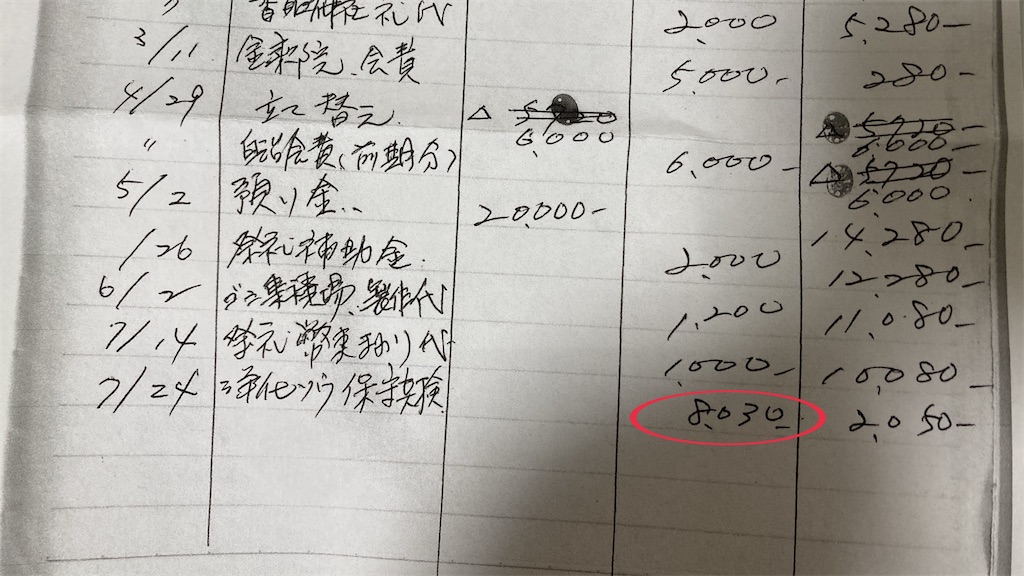 礼代 2,000 5,280-
3/11 会費 5,000- 280-
4/29 立て替え △ 6,000 6,000
〃 自治会費(前期分) 6,000- 6,000
5/2 預り金 20,000- 14,280-
/26 祭礼補助金 2,000 12,280-
6/2 ゴミ集積場、製作代 1,200 11,080-
7/14 祭礼 代 1,000- 10,080-
7/24 浄化ソウ保守点検 8,030- 2,050-